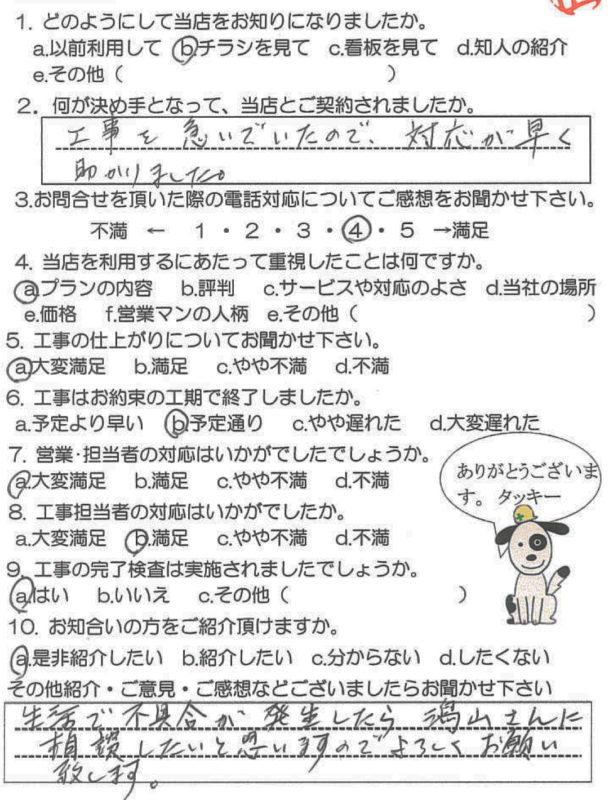 1. どのようにして当店をお知りになりましたか。
a.以前利用して b.チラシを見て c.看板を見て d.知人の紹介
e.その他（ ）
2. 何が決め手となって、当店とご契約されましたか。
工事を急いでいたので、対応が早く
助かりました。
3.お問合せを頂いた際の電話対応についてご感想をお聞かせ下さい。
不満 ← 1・2・3・4・5 →満足
4. 当店を利用するにあたって重視したことは何ですか。
a.プランの内容 b.評判 c.サービスや対応のよさ d.当社の場所
e.価格 f.営業マンの人柄 e.その他（ ）
5. 工事の仕上がりについてお聞かせ下さい。
a.大変満足 b.満足 c.やや不満 d.不満
6. 工事はお約束の工期で終了しましたか。
a.予定より早い b.予定通り c.やや遅れた d.大変遅れた
7. 営業・担当者の対応はいかがでしたでしょうか。
a.大変満足 b.満足 c.やや不満 d.不満
ありがとうございま
す。 タッキー
8. 工事担当者の対応はいかがでしたか。
a.大変満足 b.満足 c.やや不満 d.不満
9. 工事の完了検査は実施されましたでしょうか。
a.はい b.いいえ c.その他（ ）
10. お知合いの方をご紹介頂けますか。
a.是非紹介したい b.紹介したい c.分からない d.したくない
その他紹介・ご意見・ご感想などございましたらお聞かせ下さい
生活で不具合が発生したら潟山さんに
相談したいと思いますのでよろしくお願い
致します。